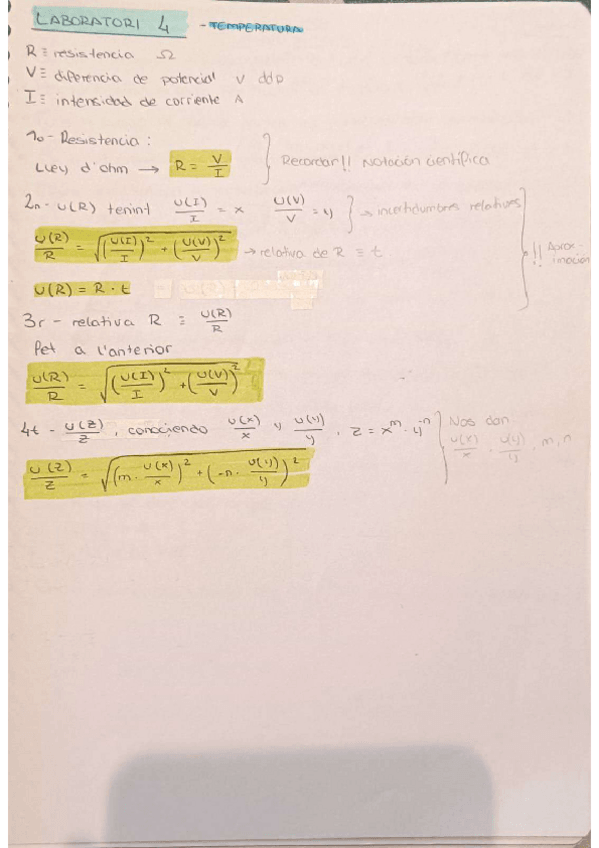 LABORATORI 4 - TEMPERATURA
R ≡ resistencia Ω
V ≡ diferencia de potencial V ddp
I ≡ intensidad de corriente A
1o- Resistencia :
Lley d'ohm → R = V/I } Recordar!! Notación científica
2n- u(R) tenint u(I)/I = x u(V)/V = y } → incertidumbres relativas
u(R)/R = √((u(I)/I)² + (u(V)/V)²) → relativa de R ≡ t } !! Aproximación
u(R) = R · t
3r - relativa R ≡ u(R)/R
Pet a l'anterior
u(R)/R = √((u(I)/I)² + (u(V)/V)²)
4t - u(z)/z, conociendo u(x)/x y u(y)/y, z = x^m · y^-n } Nos dan u(x)/x, u(y)/y, m, n
u(z)/z = √((m · u(x)/x)² + (-n · u(y)/y)²)